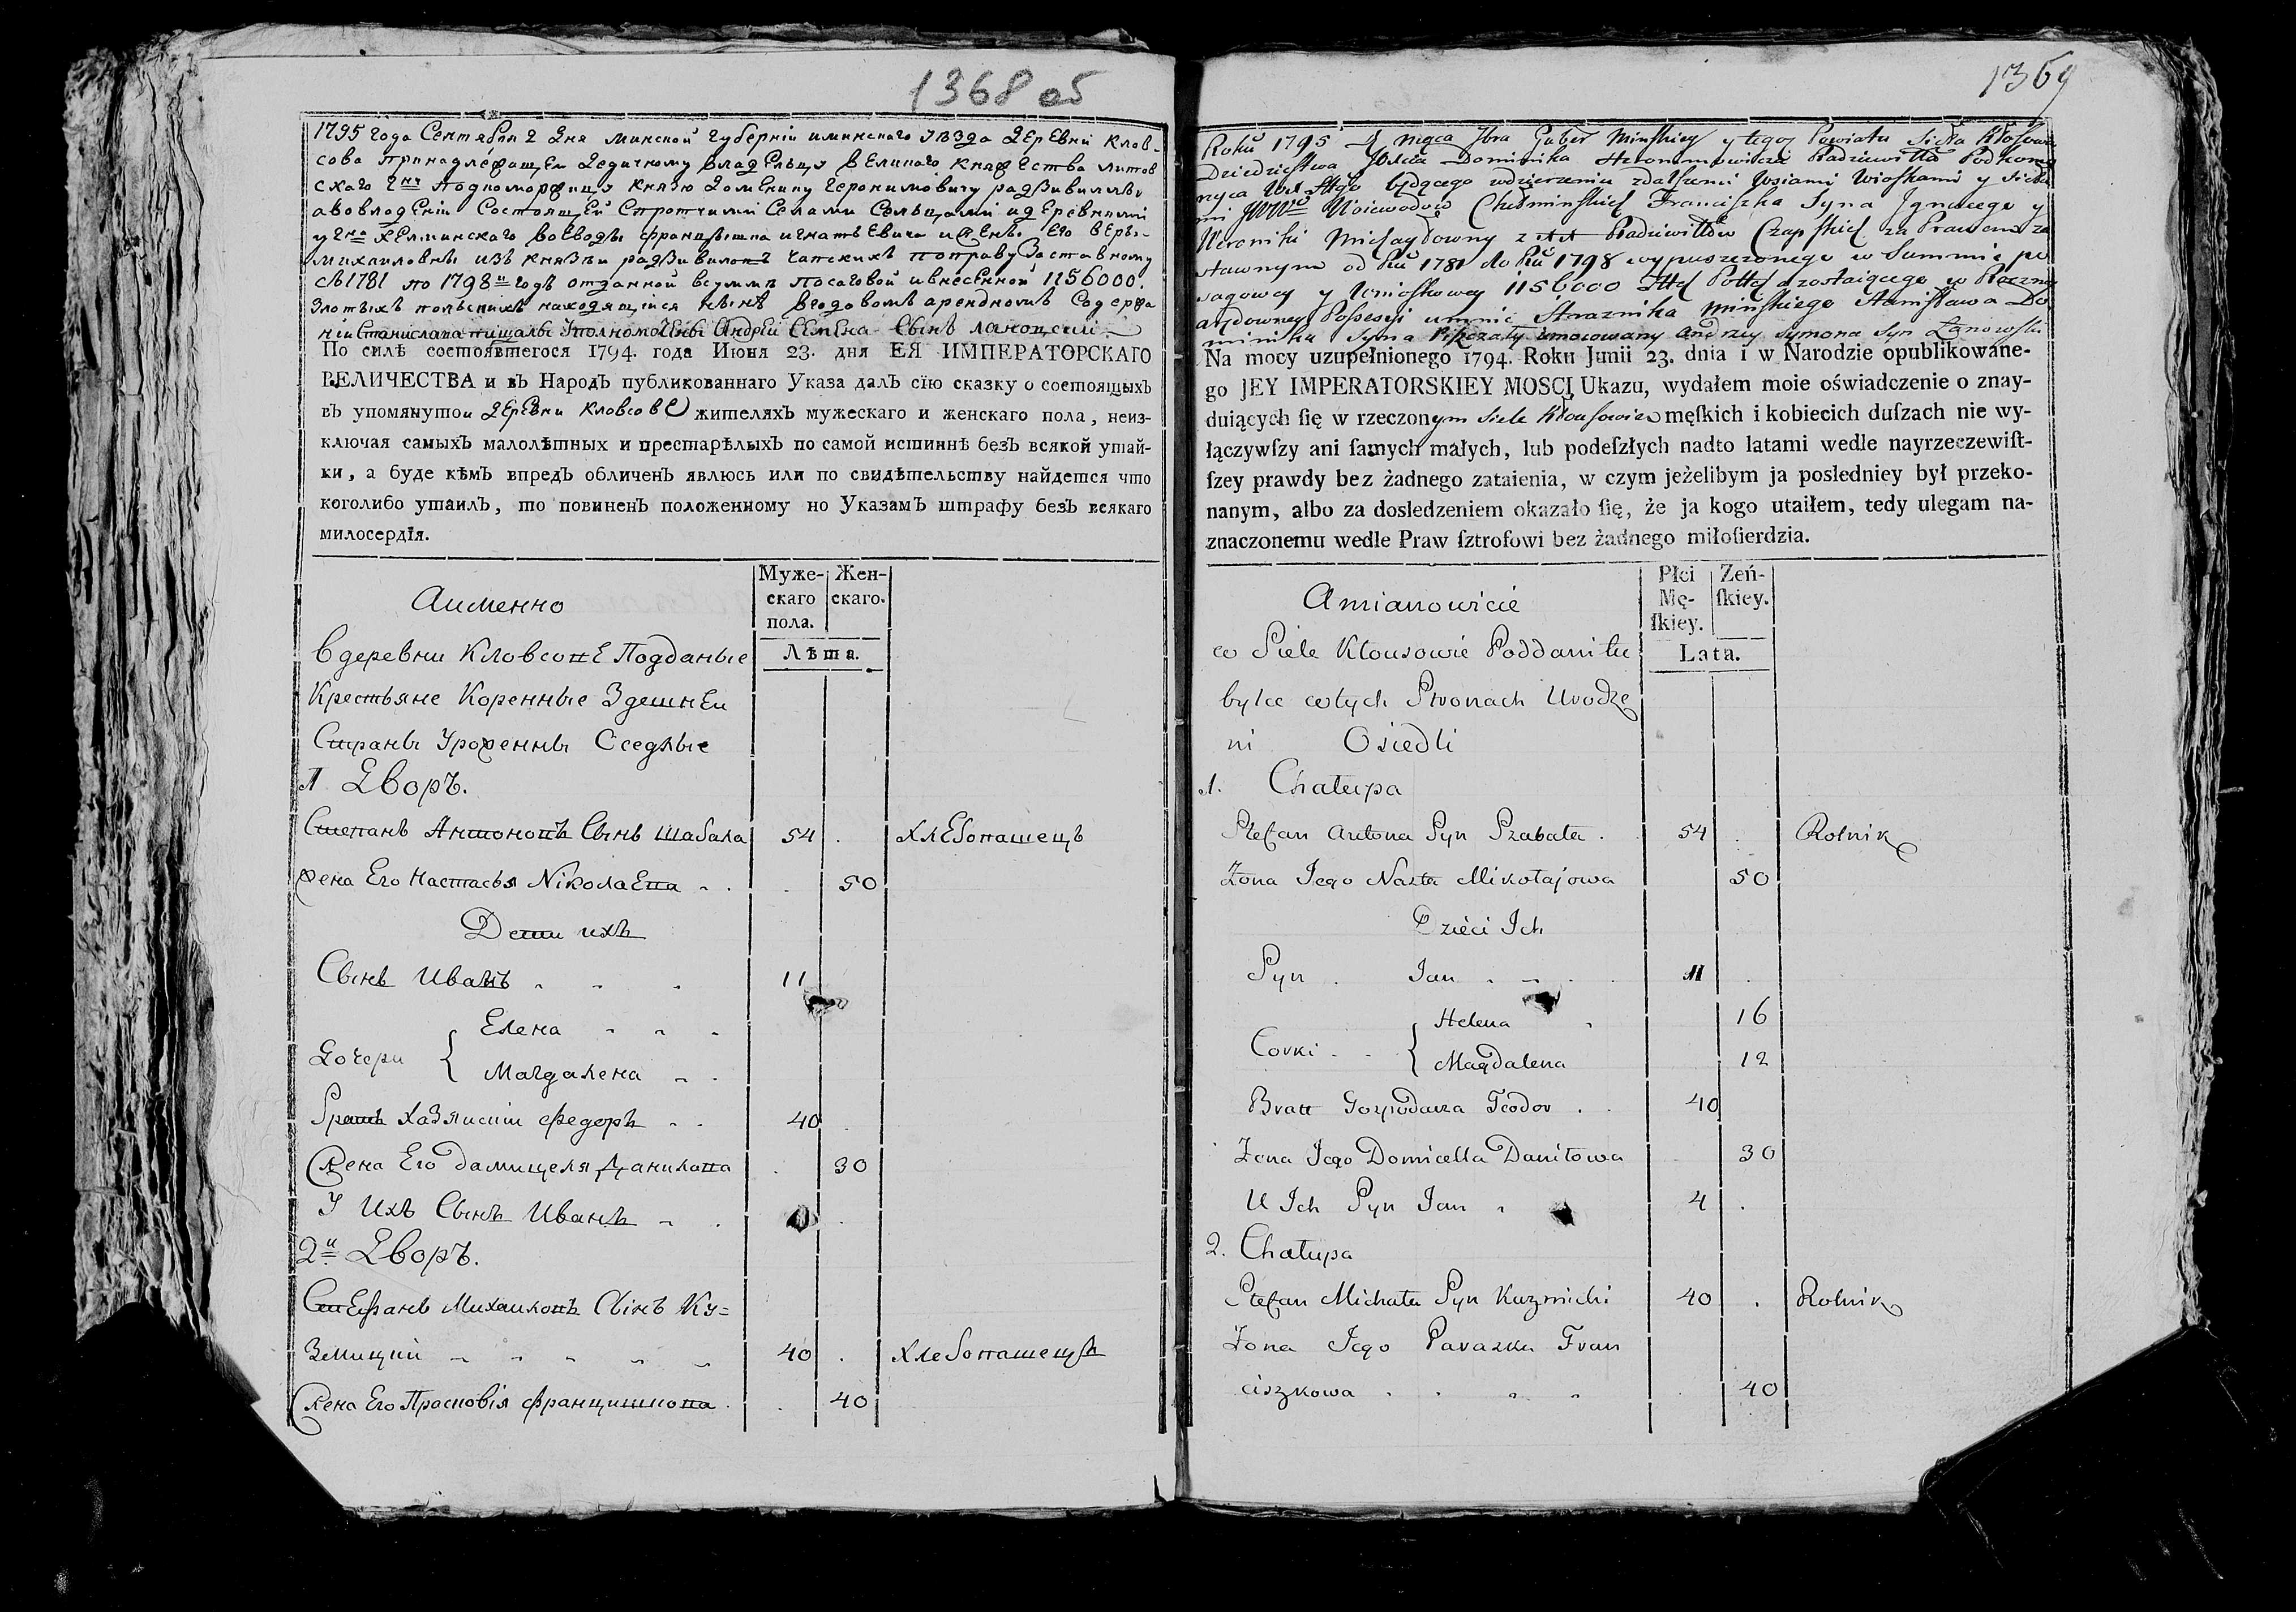 1368 об
1795 года Сентября 2 дня минской губерніи иминскаго уѣзда деревни Клов-
сова принадлежащеи дедичному владельцу великаго княжества литов
скаго подкоморжицу князю доменику Иеронимовичу радзивиллу
а во владеніи состоящеи с протчими селами сельцами и деревнями
у Хелминскаго воеводы францышка игнатьевича и жены его веры-
михаиловны изъ князеи радзивиловъ чапскихъ по праву заставному
съ 1781 по 1798 годъ отданной в сумме посаговой и внесенной 1156000.
злотыхъ польскихъ находящейся нынѣ в годовомъ арендномъ содержа
ніи Станислава пищалы уполномоченны Андреи Семена Сынъ лановскии
По силѣ состоявшегося 1794. года Июня 23. дня ЕЯ ИМПЕРАТОРСКАГО
ВЕЛИЧЕСТВА и въ Народъ публикованнаго Указа далъ сїю сказку о состоящыхъ
въ упомянутои деревни Кловсове жителяхъ мужескаго и женскаго пола, неиз-
ключая самыхъ малолѣтныхъ и престарѣлыхъ по самой истиннѣ безъ всякой утай-
ки, а буде кѣмъ впредь обличенъ явлюсь или по свидѣтельству найдется что
коголибо утаилъ, то повиненъ положенному но Указамъ штрафу безъ всякаго
милосердїя.
Аименно
Муже-
скаго
пола.
Жен-
скаго.
Лѣта.
в деревни Кловсове Подданые
Крестьяне Коренные Здешнеи
Страны Урожены Оседлые
1 Дворъ.
Степанъ Антоновъ Сынъ Шабала 54 . хлебопашецъ
Жена Его Настасья Николаева . 50
Дети ихъ
Сынъ Иванъ 11
Дочери { Елена
Магдалена
Братъ хазяискіи Федоръ 40 .
Жена Его дамицеля Данилова . 30
У Ихъ Сынъ Иванъ .
2й Дворъ.
Стефанъ Михаиловъ Сынъ Ку=
змицкии 40 . хлебопашецъ
Жена Его Прасковія францишкова . 40
1369
Roku 1795 mca 7bra Guber Minskiey y tegoż Powiatu Sioła Kłousowa
Dziedzictwa Dominika Hieronimowicza Radziwiłła Podkomo
rzyca będącego w dzierżeniu z dalszemi Wsiami Wioskami y Sioła
mi Woiewodow Chełmińskich Franciszka Syna Ignacego y
Weroniki Michayłowny z Radziwiłłow Czapskich za Prawem za
stawnym od Rku 1781 do Rku 1798 wypuszczonego w Summie po
sagowey y Wnioskowey 1156000 a zostaiącego w Roczney
arędowney Possesyi Strażnika Mińskiego Stanisława Do
minika Syna Piszczały Umocowany Andrzey Symona Syn Łanowski
Na mocy uzupełnionego 1794. Roku Junii 23. dnia i w Narodzie opublikowane-
go JEY IMPERATORSKIEY MOSCI Ukazu, wydałem moie oświadczenie o znay-
duiących ſię w rzeczonym Siele Kłousowie męſkich i kobiecich duſzach nie wy-
łączywſzy ani ſamych małych, lub podeſzłych nadto latami wedle nayrzeczewiſt-
ſzey prawdy bez żadnego zataienia, w czym jeżelibym ja posledniey był przeko-
nanym, albo za dosledzeniem okazało ſię, że ja kogo utaiłem, tedy ulegam na-
znaczonemu wedle Praw ſztrofowi bez żadnego miłoſierdzia.
Amianowicie
Płci
Mę-
ſkiey.
Zeń-
ſkiey.
Lata.
w Siele Kłousowie Poddani tu
bylce w tych Stronach Urodze
ni Osiedli
1. Chałupa
Stefan Antona Syn Szabała . 54 . Rolnik
Żona Jego Nasta Mikołajowa 50
Dzieci Ich
Syn . Jan 11 .
Corki { Helena 16
Magdalena 12
Bratt Gospodarza Teodor . 40
Żona Jego Domicella Daniłowa 30
U Ich Syn Jan 4 .
2. Chałupa
Stefan Michała Syn Kuzmicki 40 . Rolnik
Żona Jego Paraska Fran
ciszkowa . 40